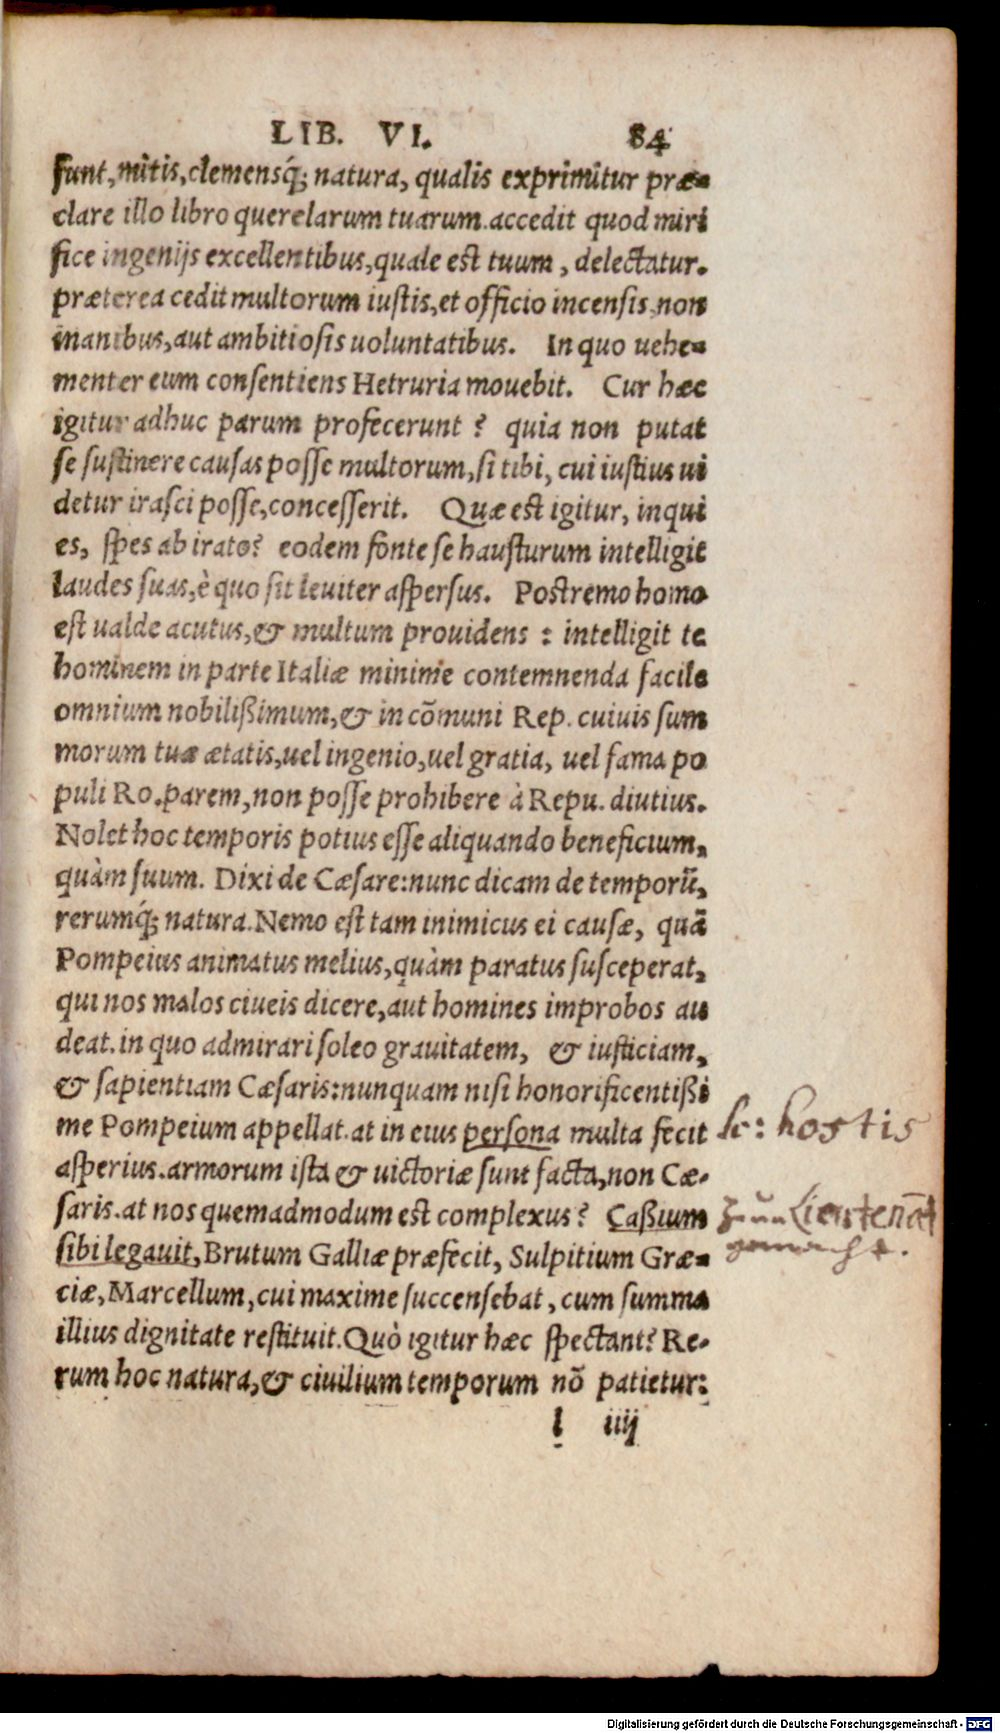 LIB. VI. 84
sunt, mitis, clemensq́; natura, qualis exprimitur præ-
clare illo libro querelarum tuarum. accedit quod miri
fice ingenijs excellentibus, quale est tuum, delectatur.
præterea cedit multorum iustis, et officio incensis, non
inanibus, aut ambitiosis uoluntatibus. In quo uehe-
menter eum consentiens Hetruria mouebit. Cur hæc
igitur adhuc parum profecerunt? quia non putat
se sustinere causas posse multorum, si tibi, cui iustius ui
detur irasci posse, concesserit. Quæ est igitur, inqui
es, spes ab irato? eodem fonte se hausturum intelligit
laudes suas, è quo sit leuiter aspersus. Postremo homo
est ualde acutus, & multum prouidens: intelligit te
hominem in parte Italiæ minime contemnenda facile
omnium nobilißimum, & in cõmuni Rep. cuiuis sum
morum tuæ ætatis, uel ingenio, uel gratia, uel fama po
puli Ro. parem, non posse prohibere à Repu. diutius.
Nolet hoc temporis potius esse aliquando beneficium,
quàm suum. Dixi de Cæsare: nunc dicam de temporũ,
rerumq́; natura. Nemo est tam inimicus ei causæ, quã
Pompeius animatus melius, quàm paratus susceperat,
qui nos malos ciueis dicere, aut homines improbos au
deat. in quo admirari soleo grauitatem, & iusticiam,
& sapientiam Cæsaris: nunquam nisi honorificentißi
me Pompeium appellat. at in eius persona multa fecit
sc: hostis
asperius. armorum ista & uictoriæ sunt facta, non Cæ-
saris. at nos quemadmodum est complexus? Caßium
zum Lieutenãt
sibi legauit, Brutum Galliæ præfecit, Sulpitium Græ-
gemacht.
ciæ, Marcellum, cui maxime succensebat, cum summa
illius dignitate restituit. Quò igitur hæc spectant? Re-
rum hoc natura, & ciuilium temporum nõ patietur:
l iiij
Digitalisierung gefördert durch die Deutsche Forschungsgemeinschaft - DFG